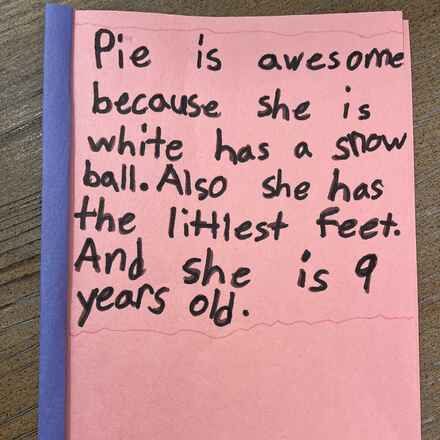 Pie is awesome
because she is
white has a snow
ball. Also she has
the littlest feet.
And she is 9
years old.